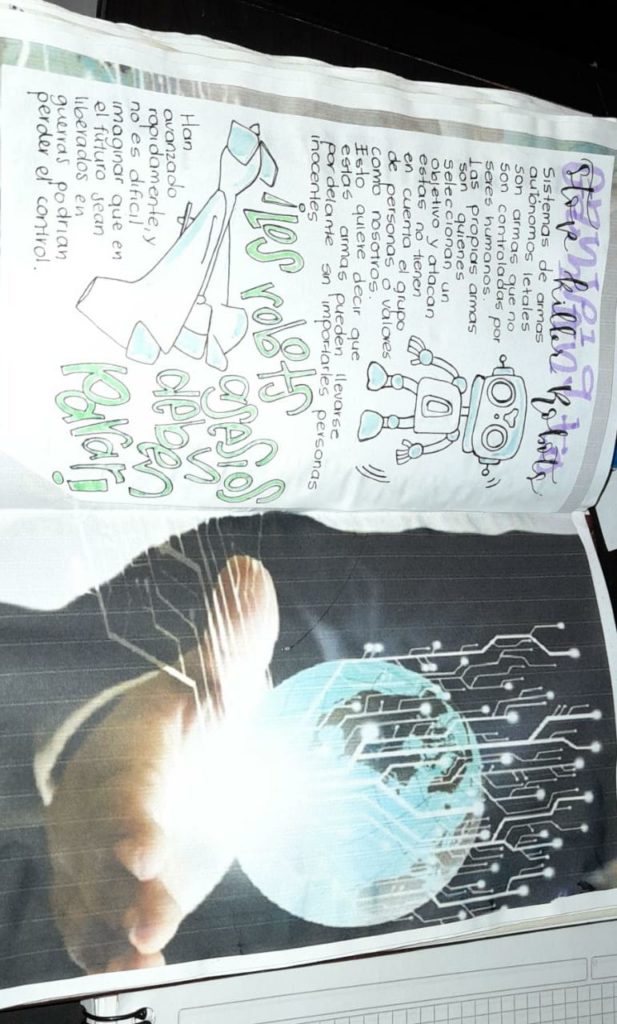 Stop killer Robots
Sistemas de armas
autónomos letales
son armas que no
son controladas por
seres humanos.
Las propias armas
son quienes
seleccionan un
objetivo y atacan
estas no tienen
en cuenta el grupo
de personas o valores
como nosotros.
Esto quiere decir que
estas armas pueden llevarse
por delante sin importarles personas
inocentes
¡los robots
asesios
deben
parar!
Han
avanzado
rapidamente, y
no es dificil
imaginar que en
el futuro sean
liberados en
guerras podrian
perder el control.